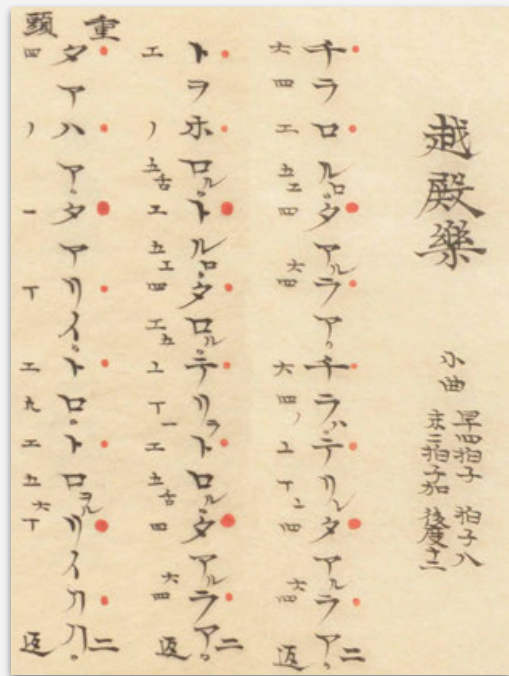 越殿樂
小曲
早四拍子 拍子八
末三拍子加 後度十二
チラロルロタアルラアチラハテリレタアルラア 二返
六四エ五エ四六四六四ノユ丅ユ四六四
トヲホロルトルロタロルテリラトロルタアルラア 二返
エノ五古エ五エ四エ五ユ丅一エ五古四六四
重頭
タアハアタアリイトロトロヲルリイリリ 二返
四ノ一丅エ九エ五六丅